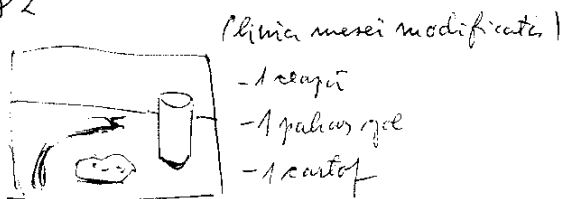 (linia mesei modificata)
- 1 ceapă
- 1 pahar gol
- 1 cartof